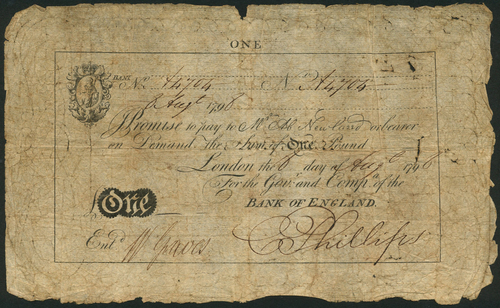 ONE
BANK No. A4704 No. A4704
6 Augt. 1798
I Promise to pay to Mr. Abm. Newland or bearer
on Demand the Sum of One Pound
London the 6 day of Augt. 1798
For the Govr. and Compa. of the
BANK OF ENGLAND
£ One
Entd.
C Phillips